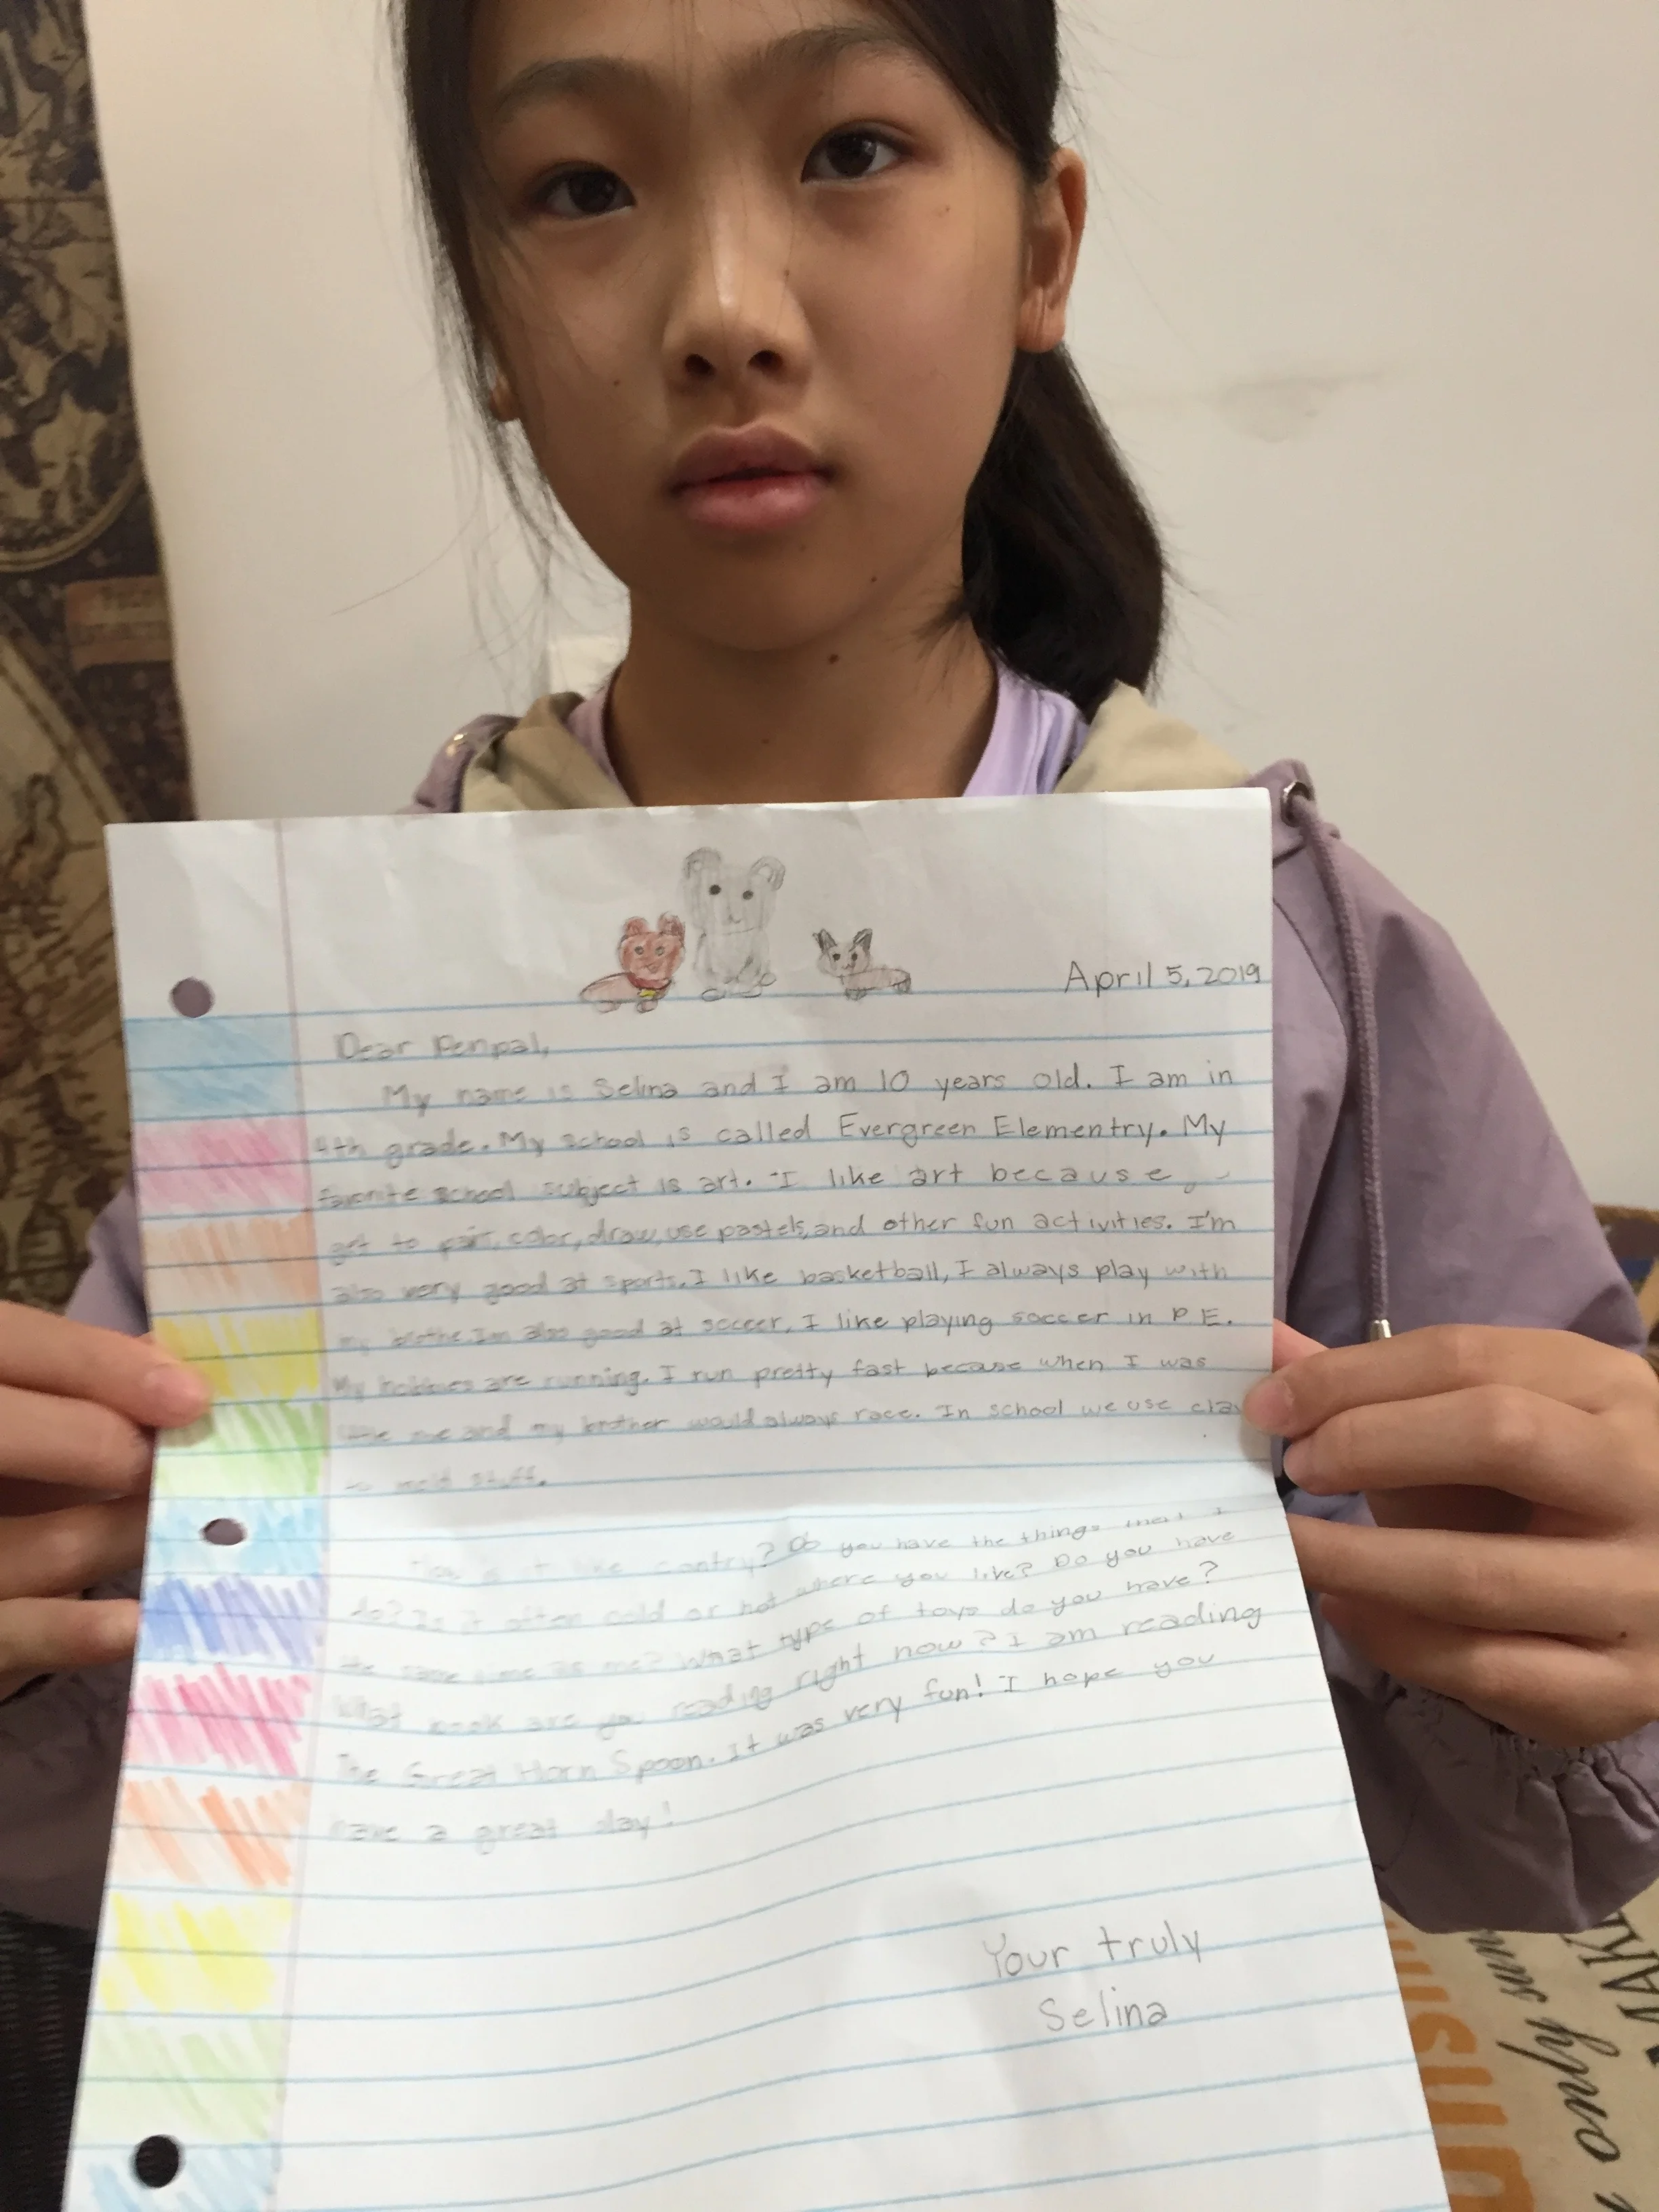 April 5, 2019
Dear Penpal,
My name is Selina and I am 10 years old. I am in
4th grade. My school is called Evergreen Elementry. My
favorite school subject is art. I like art because
get to paint, color, draw, use pastels, and other fun activities. I'm
also very good at sports. I like basketball, I always play with
my brothe. Im also good at soccer, I like playing soccer in P.E.
My hobbies are running. I run pretty fast because when I was
me and my brother would always race. In school we use clay
to mold stuff.
it like contry? Do you have the things that I
do? Is it often cold or hot where you live? Do you have
the same time as me? What type of toys do you have?
What book are you reading right now? I am reading
The Great Horn Spoon. It was very fun! I hope you
have a great day!
Your truly
Selina